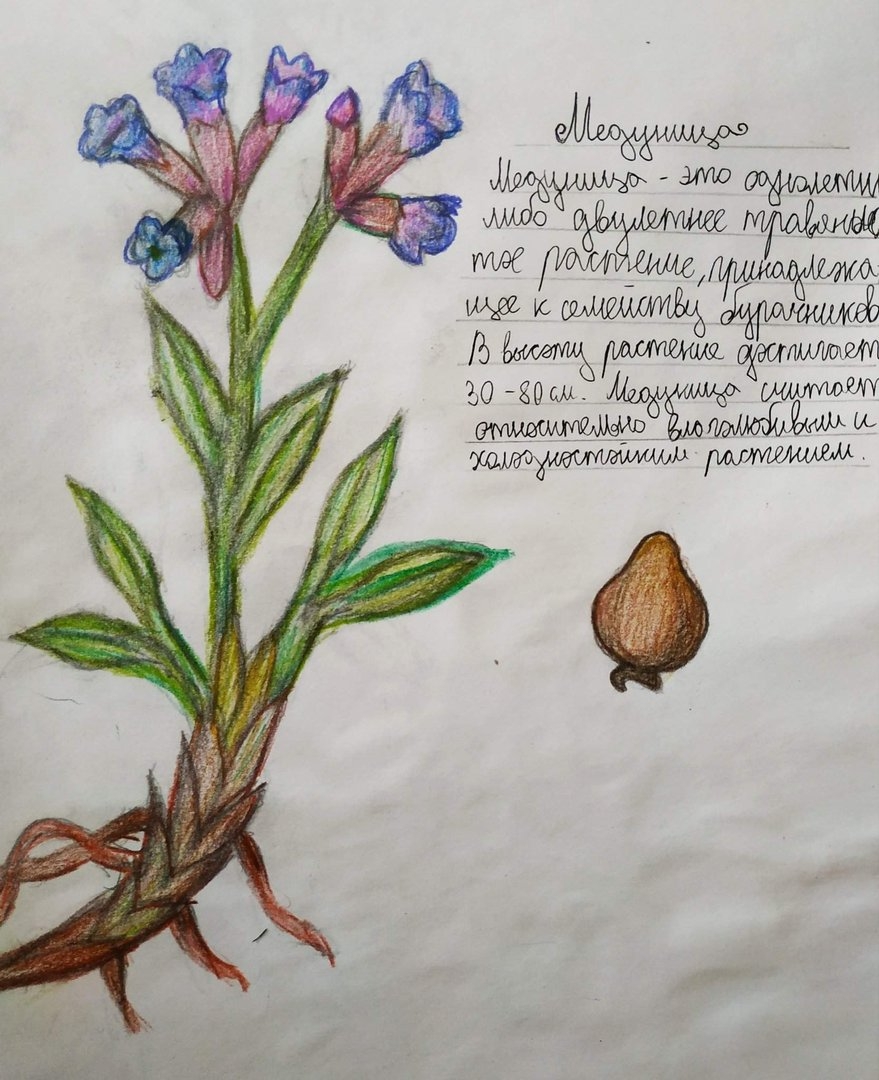 Медуница
Медуница - это однолетни
либо двулетнее травянис
тое растение, принадлежа
щее к семейству бурачников
В высоту растение достигает
30-80 см. Медуница считает
относительно влаголюбивым и
холодностойким растением.